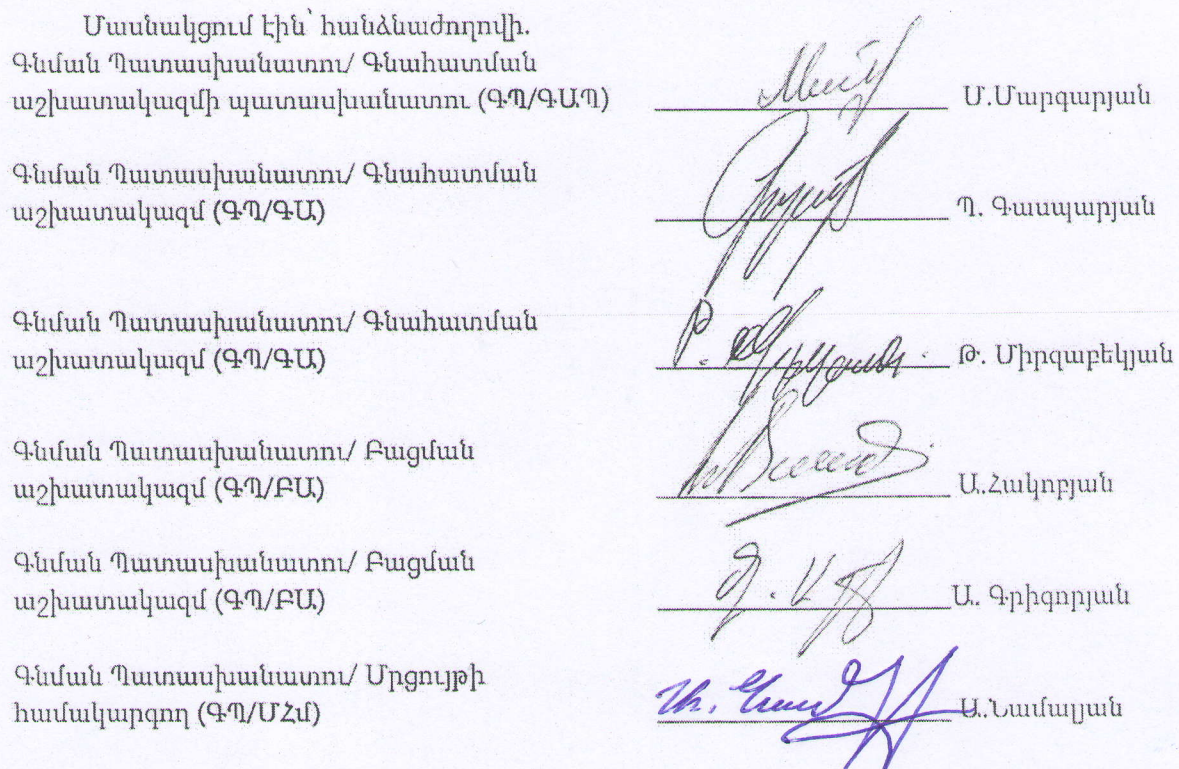 Մասնակցում էին՝ հանձնաժողովի.
Գնման Պատասխանատու/ Գնահատման
աշխատակազմի պատասխանատու (ԳՊ/ԳԱՊ) Մ.Մարգարյան
Գնման Պատասխանատու/ Գնահատման
աշխատակազմ (ԳՊ/ԳԱ) Պ. Գասպարյան
Գնման Պատասխանատու/ Գնահատման
աշխատակազմ (ԳՊ/ԳԱ) Թ. Միրզաբեկյան
Գնման Պատասխանատու/ Բացման
աշխատակազմ (ԳՊ/ԲԱ) Ա.Հակոբյան
Գնման Պատասխանատու/ Բացման
աշխատակազմ (ԳՊ/ԲԱ) Ա. Գրիգորյան
Գնման Պատասխանատու/ Մրցույթի
համակարգող (ԳՊ/ՄՀմ) Ա.Նամալյան